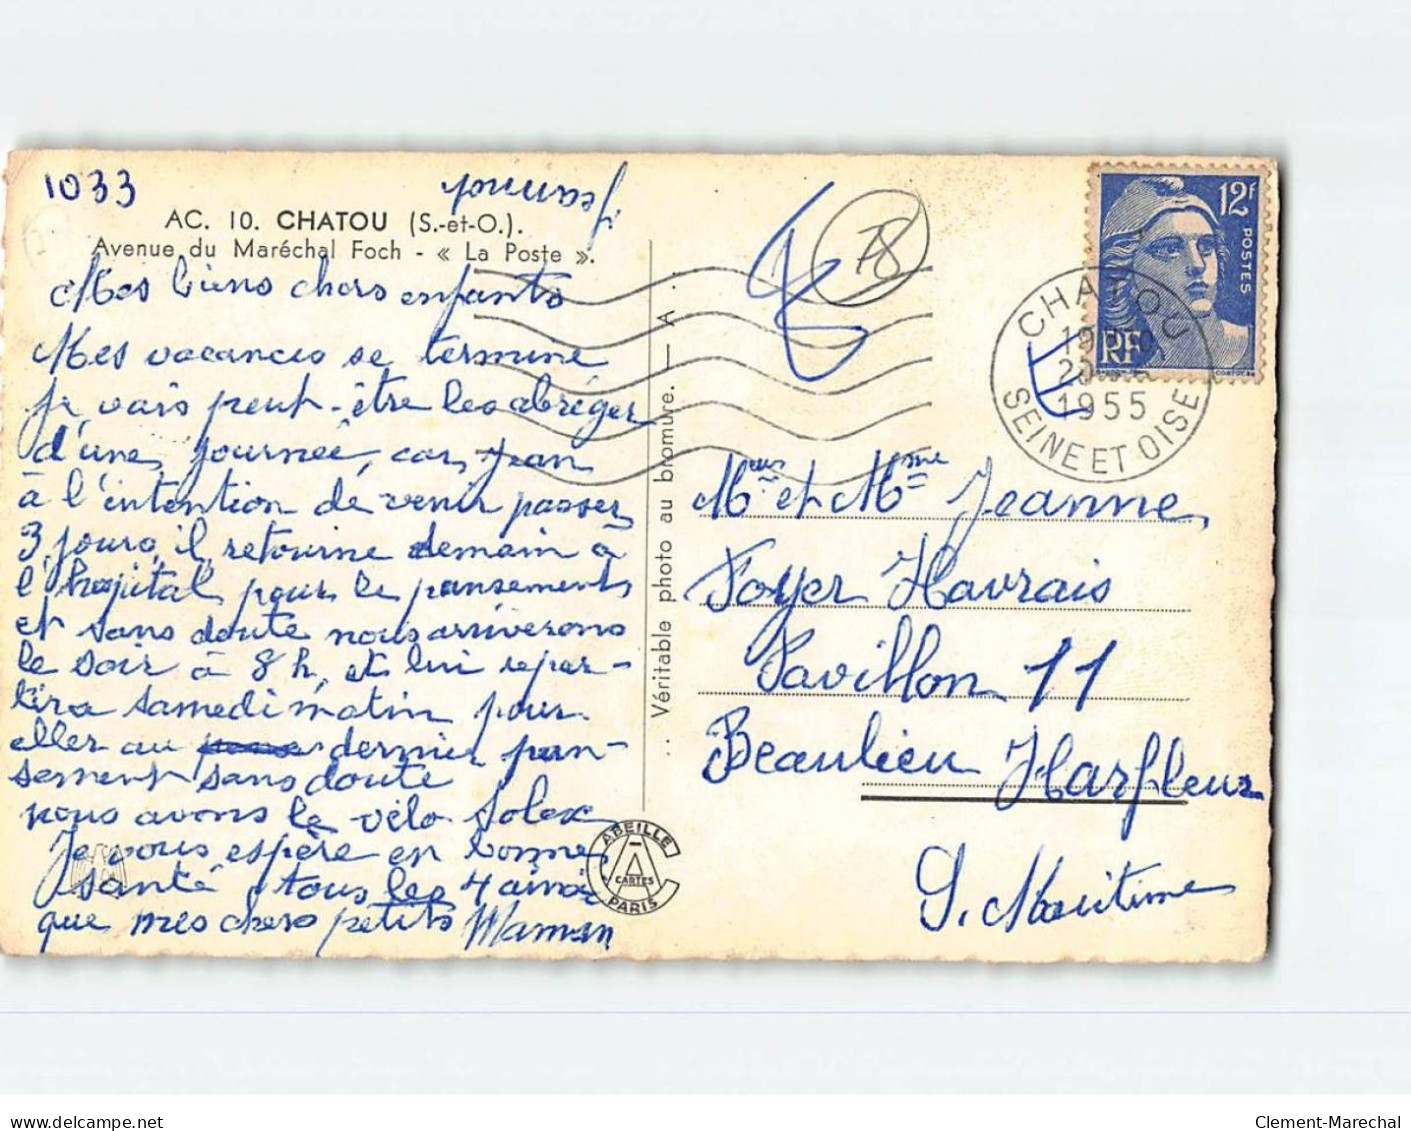 1033
Jeannot
AC. 10. CHATOU (S.-et-O.).
Avenue du Maréchal Foch - « La Poste ».
Mes biens chers enfants
Mes vacances se termine
je vais peut-être les abréger
d'une journée, car Jean
à l'intention de venir passer
3 jours, il retourne demain à
l'hopital pour le pansements
et sans doute nous arriverons
le soir à 8 h, et lui repar-
tira samedi matin pour
aller au dernier pan-
sement sans doute
nous avons le vélo Solex
Je vous espère en bonne
santé tous les 4 ainsi
que mes chers petits Maman
.. Véritable photo au bromure. — A ..
ABEILLE
CARTES
PARIS
78
12F
POSTES
RF
CHATOU
19
1955
SEINE ET OISE
Mr et Mme Jeanne
Foyer Havrais
Pavillon 11
Beaulieu Harfleur
S. Maritime
Clement-Marechal